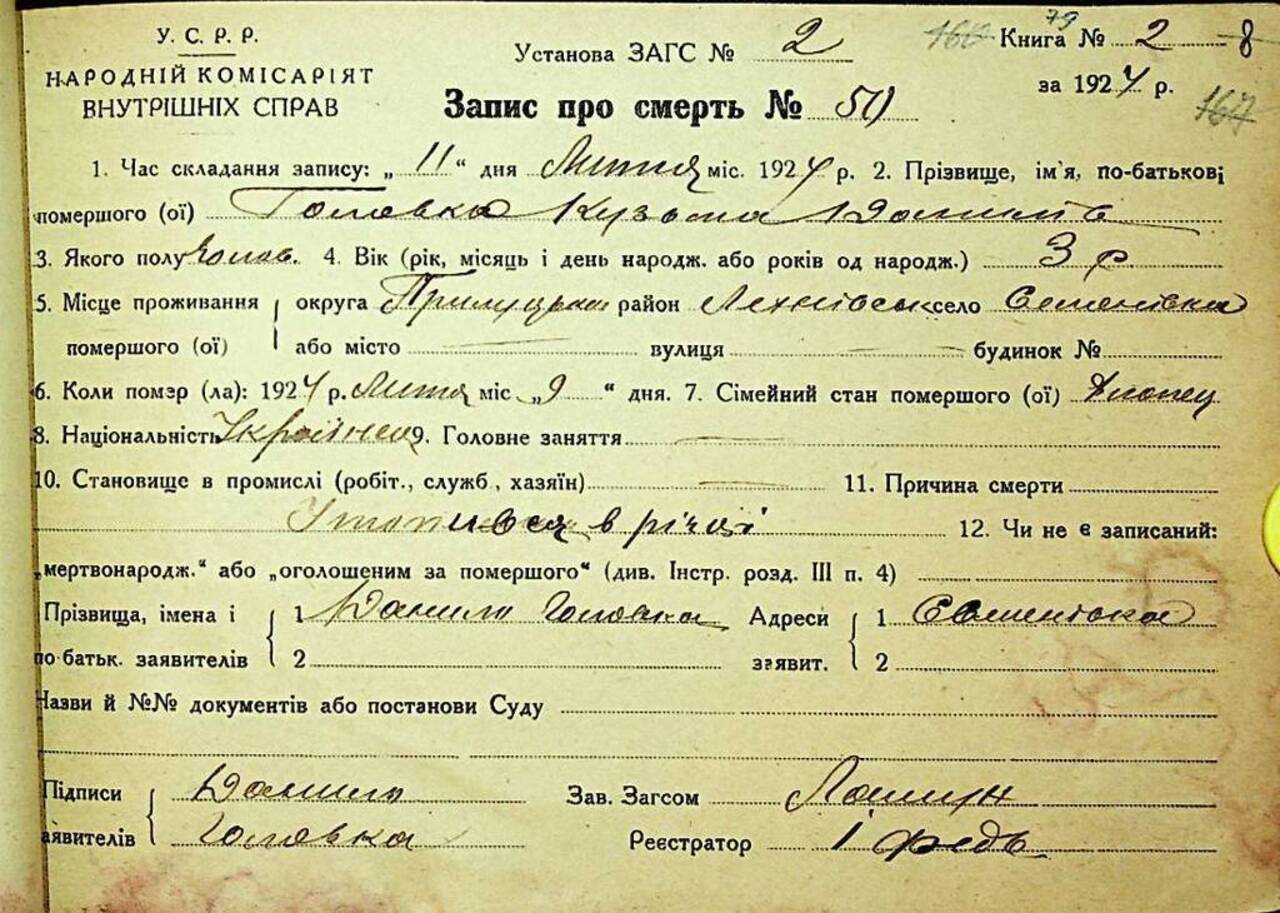 У. С. Р. Р.
НАРОДНІЙ КОМІСАРІЯТ
ВНУТРІШНІХ СПРАВ
Установа ЗАГС № 2
167 79 Книга № 2 8
за 1924 р.
167
Запис про смерть № 50
1. Час складання запису: „11“ дня Липня міс. 1924 р. 2. Прізвище, ім'я, по-батькові
помершого (ої) Головка Кузьма Данилів
3. Якого полу Чолов. 4. Вік (рік, місяць і день народж. або років од народж.) 3 р
5. Місце проживання округа Прилуцька район Лехнівськ село Семенівка
помершого (ої) або місто вулиця будинок №
6. Коли помэр (ла): 1924 р. Липня міс „9“ дня. 7. Сімейний стан помершого (ої) Хлопец
8. Національність Українец 9. Головне заняття
10. Становище в промислі (робіт., служб., хазяїн) 11. Причина смерти
Утопився в річці 12. Чи не є записаний:
„мертвонародж.“ або „оголошеним за помершого“ (див. Інстр. розд. III п. 4)
Прізвища, імена і 1 Данило Головка Адреси 1 Семенівка
по батьк. заявителів 2 заявит. 2
Назви й №№ документів або постанови Суду
Підписи Данило Зав. Загсом
заявителів Головка Реєстратор І Федь